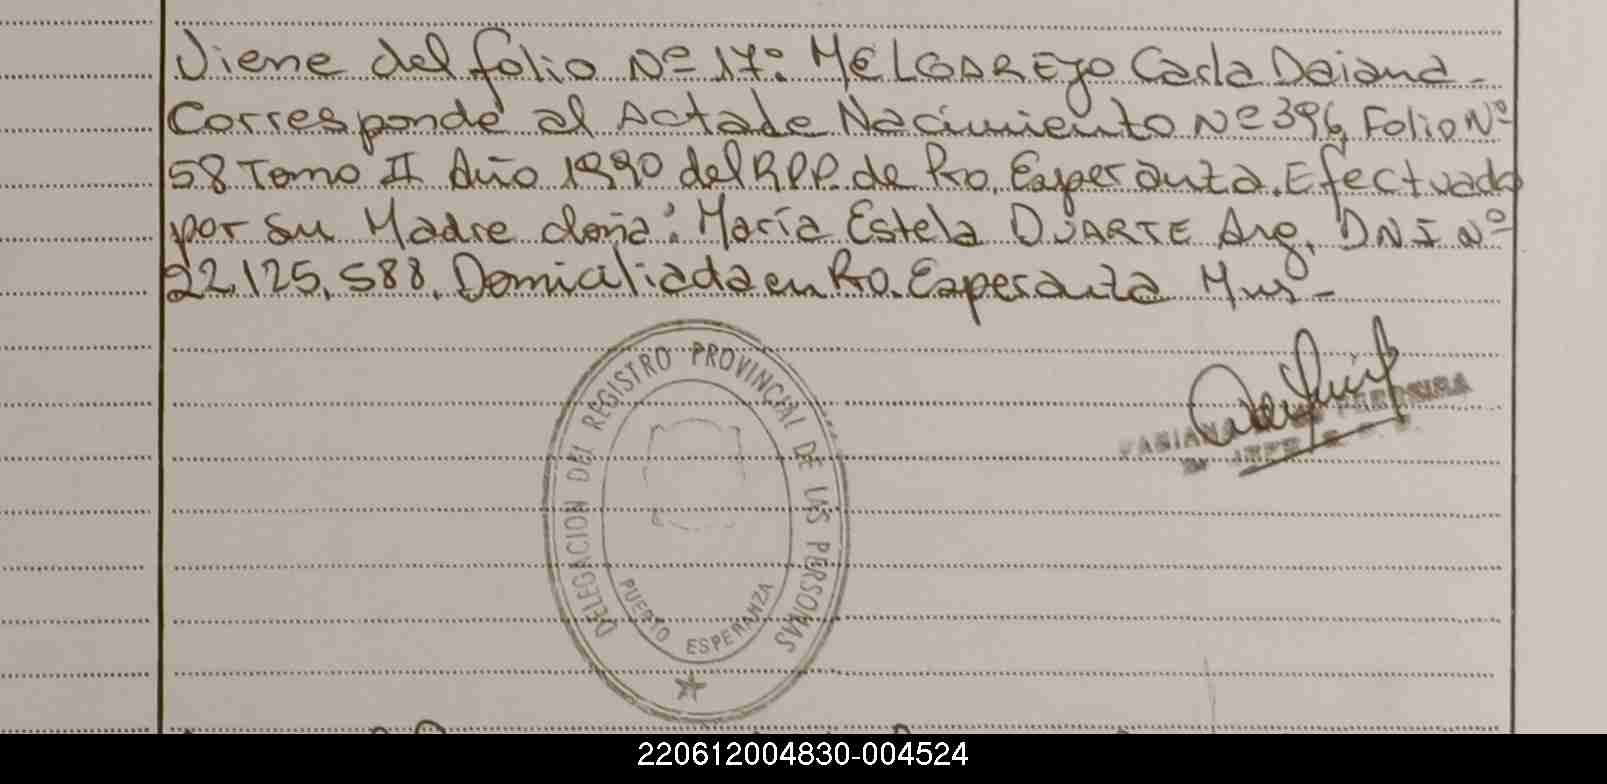 Viene del folio Nº 17: MELGAREJO Carla Daiana-
Corresponde al Acta de Nacimiento Nº 396, Folio Nº
58 Tomo II Año 1990 del R.P.P. de Pto. Esperanza. Efectuada
por su Madre doña: María Estela DUARTE Arg. DNI Nº
22.125.588. Domiciliada en Pto. Esperanza Mns-
DELEGACION DEL REGISTRO PROVINCIAL DE LAS PERSONAS
PUERTO ESPERANZA
FABIANA PEREIRA
220612004830-004524